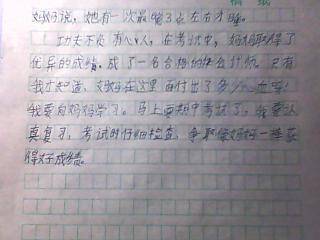 稿纸
妈妈说，她有一次最晚3点左右才睡。
功夫不负有心人，在考试中，妈妈取得了
优异的成绩，成了一名合格的会计师。只有
我才知道，妈妈在这里面付出了多少
我要向妈妈学习。马上要期中考试了，我要认
真复习，考试时仔细检查，争取像妈妈一样获
得好成绩。